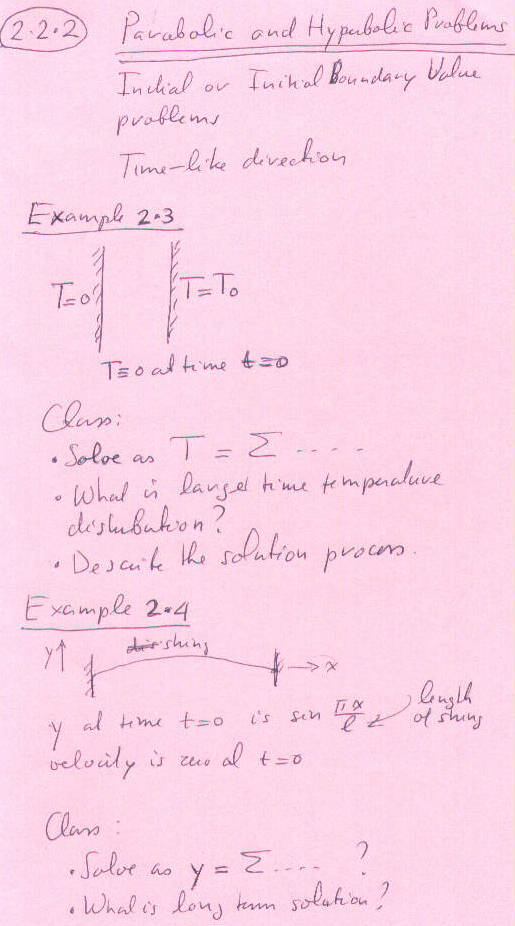 2.2.2 Parabolic and Hyperbolic Problems
Initial or Initial Boundary Value
problems
Time-like direction
Example 2.3
T=0 T=T₀
T≡0 at time t=0
Class:
• Solve as T = Σ ....
• What is large time temperature
distribution?
• Describe the solution process.
Example 2.4
y↑ string → x
y at time t=0 is sin πx/ℓ length
of string
velocity is zero at t=0
Class:
• Solve as y = Σ .... ?
• What is long term solution?